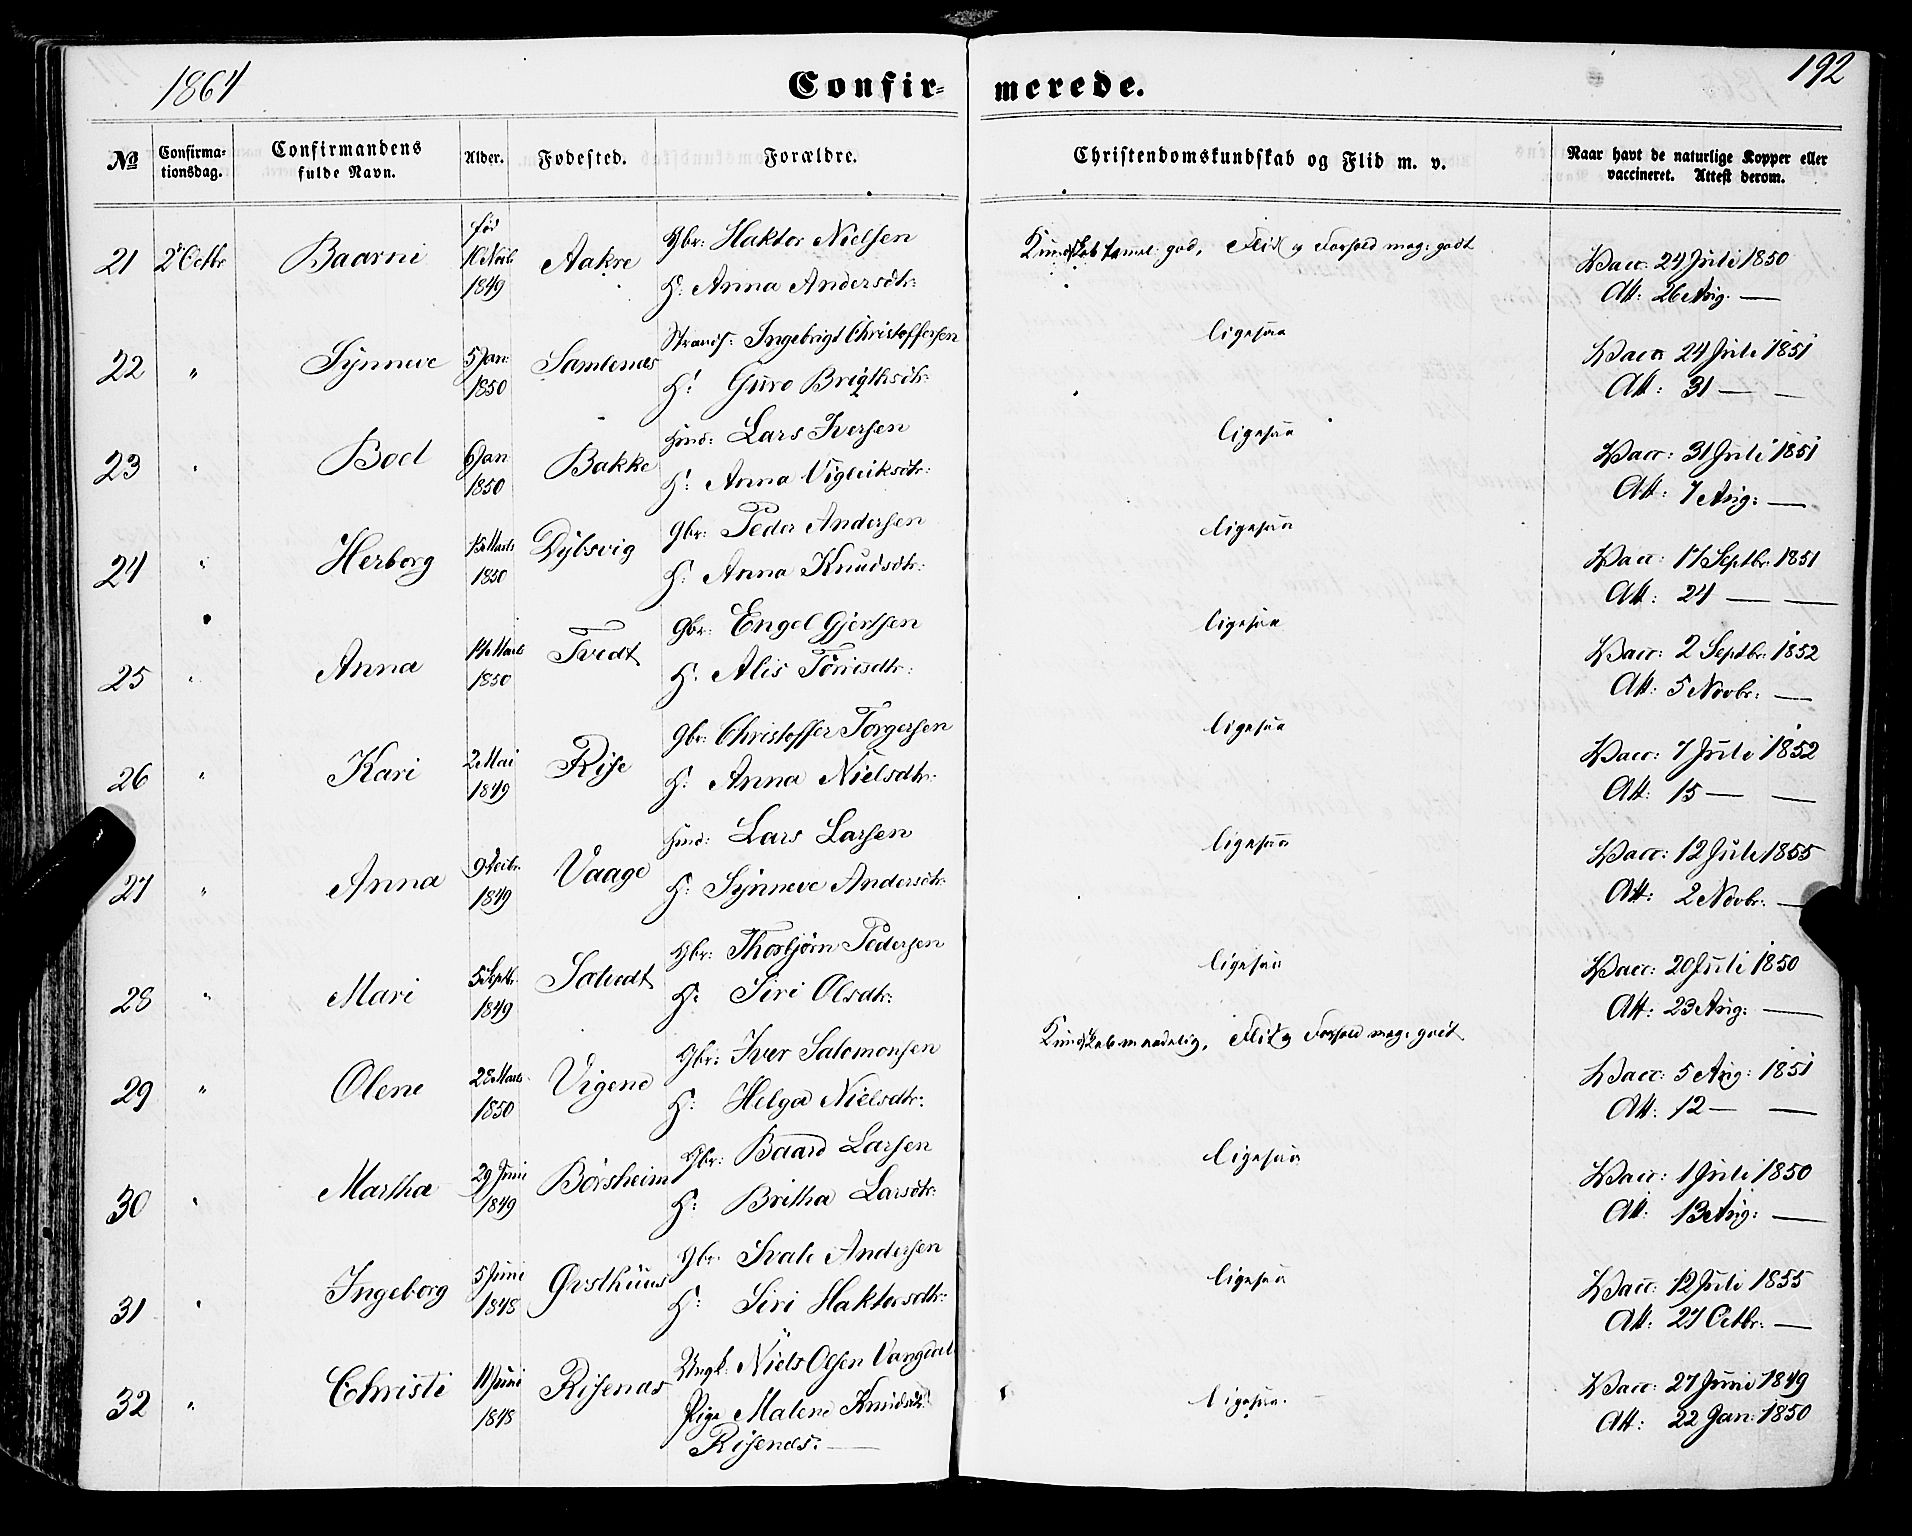 1864 Confir- merede. 192
No Confirma-tionsdag. Confirmandens fulde Navn. Alder. Fødested. Forældre. Christendomskundskab og Flid m. v. Naar havt de naturlige Kopper eller vaccineret. Attest derom.
21 2 Octbr Baarni 1849 Aakre Gbr: Haktor Nielsen
H: Anna Andersdtr:
Kundskab temmel: god, Flid og Forhold meg: godt
Vacc: 24 Juli 1850
Att: 26 Aug. —
22 " Synneve 5 Jan: 1850 Samlenæs Strands: Ingebrigt Christoffersen
H: Guro Brigthsdtr:
ligesaa
Vacc 24 Juli 1851
Att: 31 — —
23 " Boel 6 Jan 1850 Bakke Huusd: Lars Iversen
H: Anna Vigleiksdtr:
ligesaa
Vacc: 31 Juli 1851
Att: 7 Aug: —
24 " Herborg Marts 1850 Dybsvig Gbr: Peder Andersen
H: Anna Knudsdtr:
ligesaa
Vacc: 17 Septbr: 1851
Att: 24 — —
25 " Anna 14 Marts 1850 Tvedt Gbr: Engel Gjertsen
H: Alis Torrisdtr:
ligesaa
Vacc: 2 Septbr: 1852
Att: 5 Novbr: —
26 " Kari 2 Mai 1849 Rise Gbr: Christoffer Torgersen
H: Anna Nielsdtr:
ligesaa
Vacc: 7 Juli 1852
Att: 15 — —
27 " Anna 1849 Vaage Huusd: Lars Larsen
H: Synneve Andersdtr:
ligesaa
Vacc: 12 Juli 1855
Att: 2 Novbr: —
28 " Mari 5 Septbr. 1849 Solvedt Gbr: Thorbjørn Pedersen
H: Siri Olsdtr:
ligesaa
Vacc: 20 Juli 1850
Att: 23 Aug: —
29 " Olene 28 Marts 1850 Vigene Gbr: Iver Salomonsen
H: Helga Nielsdtr:
Kundskab maadelig, Flid og Forhold meg: godt
Vacc: 5 Aug: 1851
Att: 12 — —
30 " Martha 29 Juni 1849 Børsheim Gbr: Baard Larsen
H: Britha Larsdtr:
ligesaa
Vacc: 1 Juli 1850
Att: 13 Aug: —
31 " Ingeborg 5 Juni 1848 Østhuus Gbr: Ivale Andersen
H: Siri Haktorsdtr:
ligesaa
Vacc: 12 Juli 1855
Att: 27 Octbr: —
32 " Christi 11 Juni 1848 Risenæs Ungk: Niels Olsen Vangdal
Pige Malene Knudsdtr
Risenæs: —
ligesaa.
Vacc: 27 Juni 1849
Att: 22 Jan: 1850